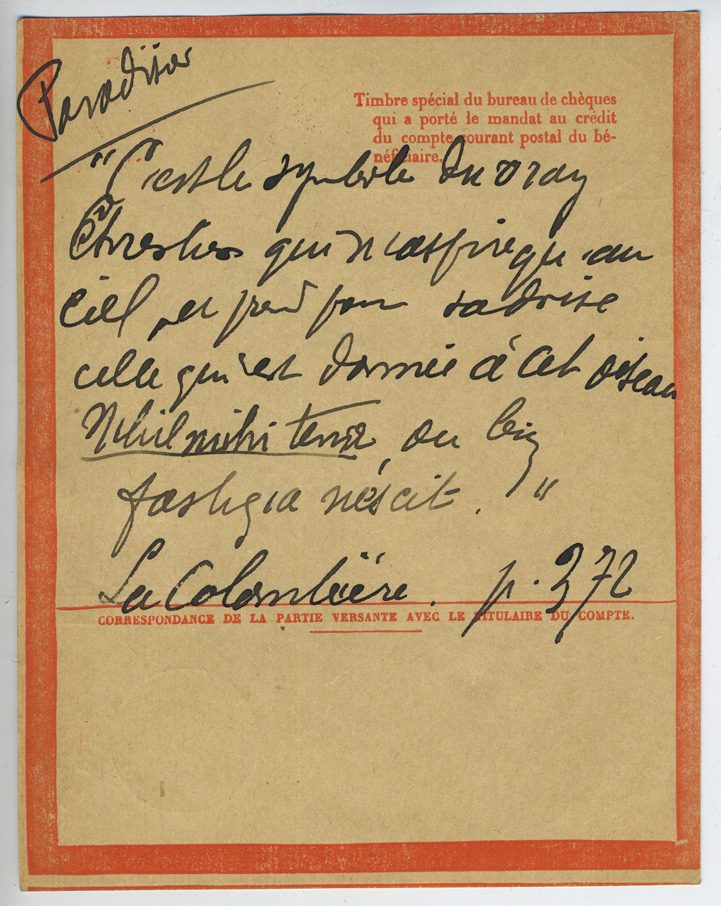 Paradisier
Timbre spécial du bureau de chèques
qui a porté le mandat au crédit
du compte courant postal du bé-
néficiaire.
"C'est le symbole du vray
Chrestien qui n'aspire qu'au
ciel, et prend pour sa devise
celle qui est donnée à cet oiseau
Nihil mihi terra, ou bien
fastigia nescit."
La Colombière. p. 372
CORRESPONDANCE DE LA PARTIE VERSANTE AVEC LE TITULAIRE DU COMPTE.